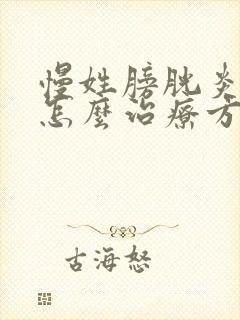 慢姓膀胱炎
怎麼治療方
古海怒